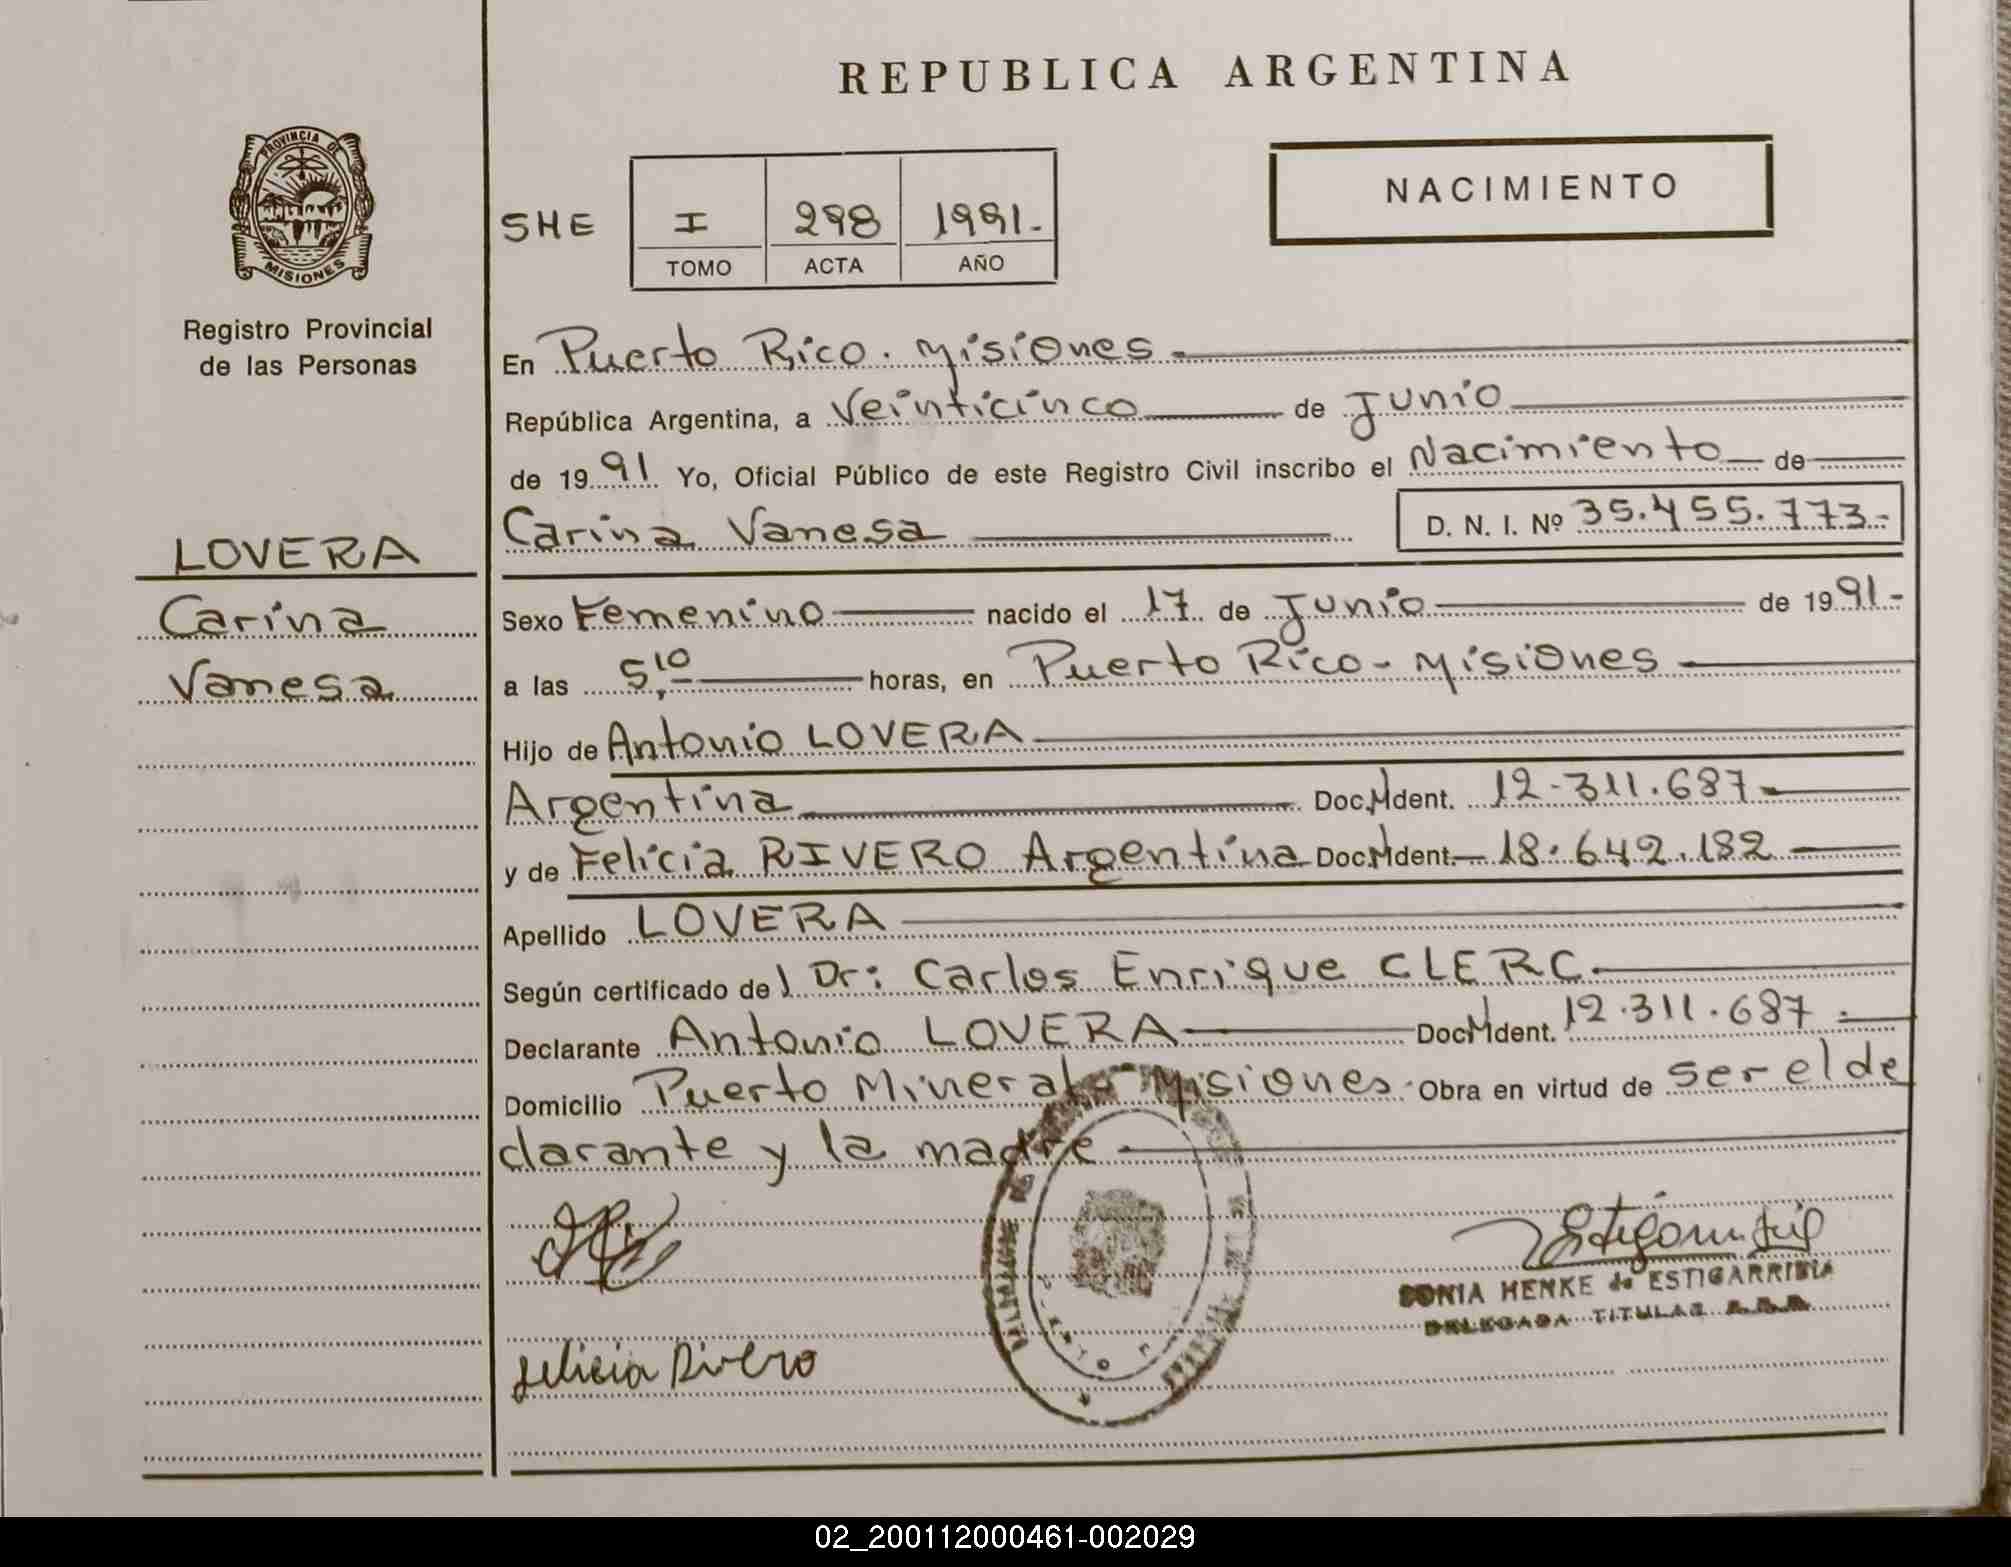 REPUBLICA ARGENTINA
PROVINCIA DE
MISIONES
NACIMIENTO
SHE
I 298 1991.-
TOMO ACTA AÑO
Registro Provincial
de las Personas
LOVERA
Carina
Vanesa
En Puerto Rico. Misiones
República Argentina, a Veinticinco de Junio
de 1991 Yo, Oficial Público de este Registro Civil inscribo el Nacimiento de
Carina Vanesa D. N. I. Nº 35.455.773.-
Sexo Femenino nacido el 17 de Junio de 1991.-
a las 5,10 horas, en Puerto Rico - Misiones
Hijo de Antonio LOVERA
Argentina Doc. Ident. 12.311.687
y de Felicia RIVERO Argentina Doc. Ident. 18.642.182
Apellido LOVERA
Según certificado del Dr: Carlos Enrique CLERC
Declarante Antonio LOVERA Doc. Ident. 12.311.687
Domicilio Puerto Mineral - Misiones. Obra en virtud de ser el de
clarante y la madre
Felicia Rivero
SONIA HENKE de ESTIGARRIBIA
DELEGADA TITULAR
02_200112000461-002029